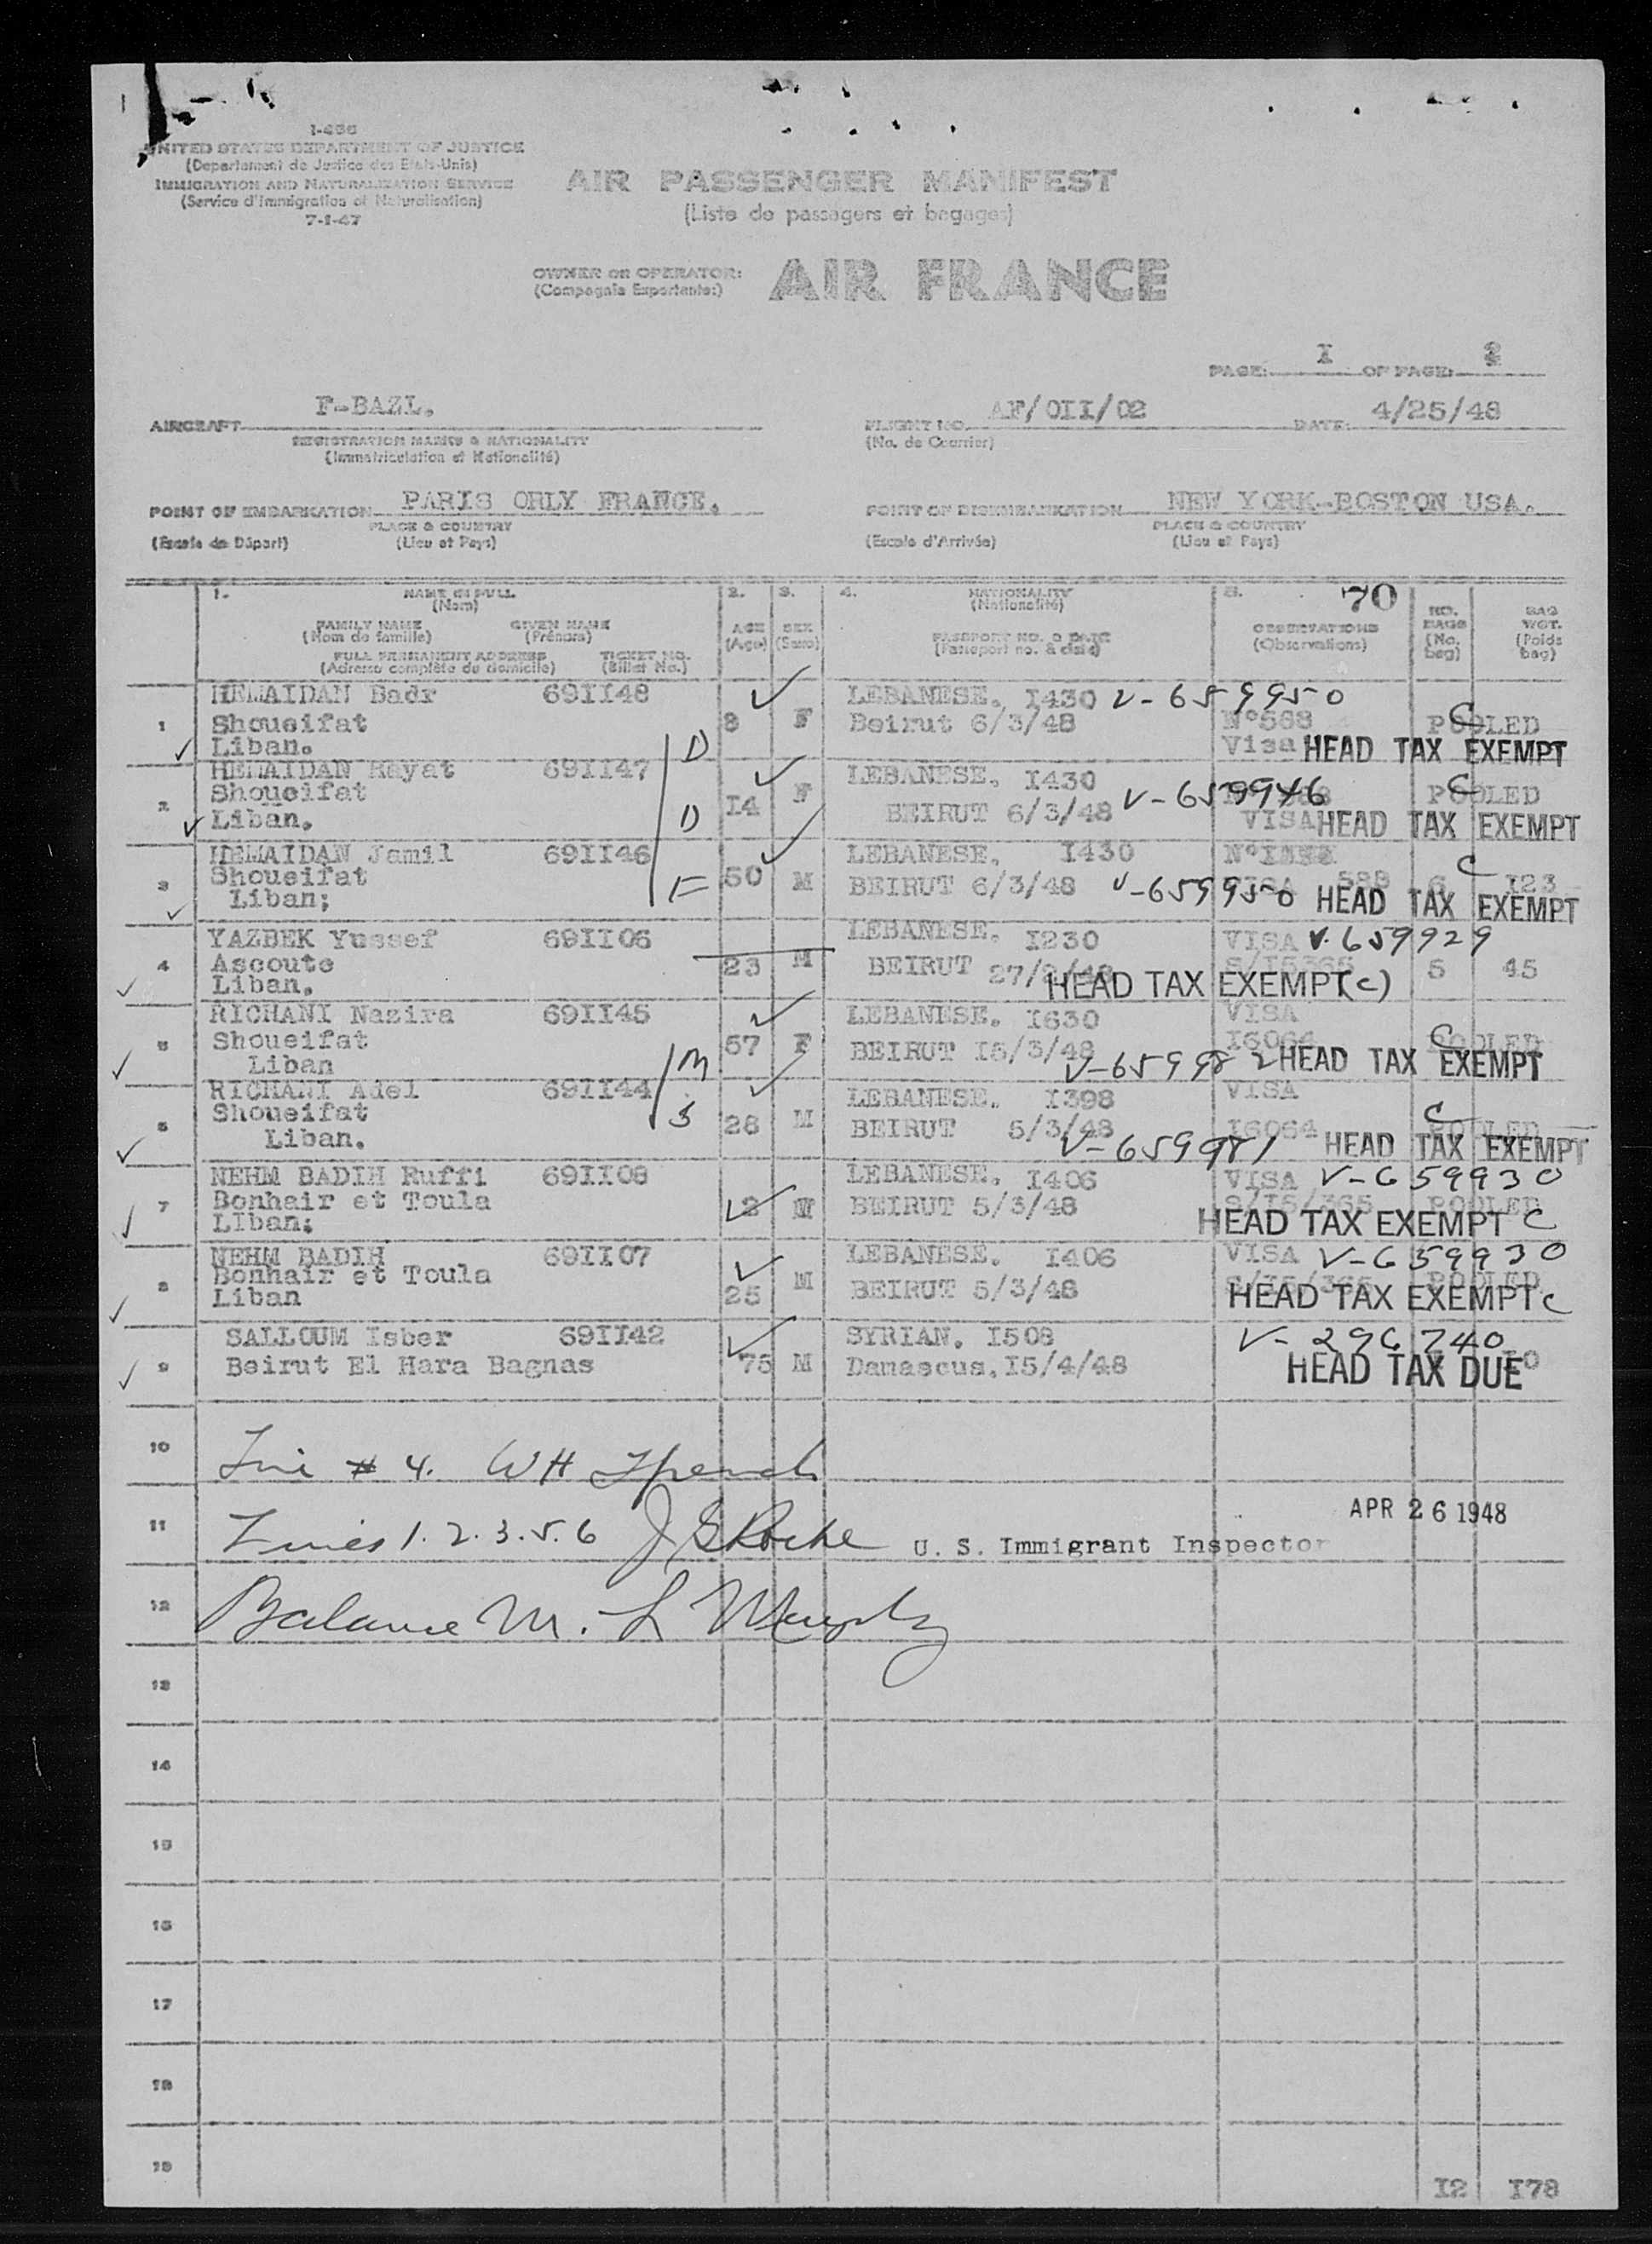 I-466
UNITED STATES DEPARTMENT OF JUSTICE
(Departement de Justice des Etats-Unis)
IMMIGRATION AND NATURALIZATION SERVICE
(Service d'Immigration et Naturalisation)
7-1-47
AIR PASSENGER MANIFEST
(Liste de passagers et bagages)
OWNER OR OPERATOR: AIR FRANCE
(Compagnie Exportante:)
PAGE: I OF PAGE: 2
AIRCRAFT F-BAZL.
REGISTRATION MARKS & NATIONALITY
(Immatriculation et Nationalité)
FLIGHT NO. AF/OII/02 DATE: 4/25/48
(No. de Courrier)
POINT OF EMBARKATION PARIS ORLY FRANCE.
PLACE & COUNTRY
(Escale de Départ) (Lieu et Pays)
POINT OF DISEMBARKATION NEW YORK-BOSTON USA.
PLACE & COUNTRY
(Escale d'Arrivée) (Lieu et Pays)
1. NAME IN FULL 2. 3. 4. NATIONALITY 5. 70
(Nom) (Nationalité)
FAMILY NAME GIVEN NAME AGE SEX PASSPORT NO. & DATE OBSERVATIONS NO. BAGS BAG WGT.
(Nom de famille) (Prénoms) (Age) (Sexe) (Passeport no. & date) (Observations) (No. bag) (Poids bag)
FULL PERMANENT ADDRESS TICKET NO.
(Adresse complète du domicile) (Billet No.)
HEMAIDAN Badr 69II48 LEBANESE. I430 V-659950
1 Shoueifat 8 F Beirut 6/3/48 N°588 POOLED C
Liban. Visa HEAD TAX EXEMPT
D
HEMAIDAN Hayat 69II47 LEBANESE. I430
2 Shoueifat I4 F BEIRUT 6/3/48 V-659946 POOLED C
Liban. D VISA HEAD TAX EXEMPT
HEMAIDAN Jamil 69II46 LEBANESE. I430
3 Shoueifat 50 M BEIRUT 6/3/48 V-659950 VISA 588 6 C I23
Liban; F HEAD TAX EXEMPT
YAZBEK Yussef 69II06 LEBANESE. I230 VISA V-659929
4 Ascoute 23 M BEIRUT 27/2/48 S/I5365 5 45
Liban. HEAD TAX EXEMPT (C)
RICHANI Nazira 69II45 LEBANESE. I630 VISA
5 Shoueifat 57 F BEIRUT I5/3/48 I6064 POOLED C
Liban M V-659982 HEAD TAX EXEMPT
RICHANI Adel 69II44 LEBANESE. I398 VISA
6 Shoueifat S 28 M BEIRUT 5/3/48 I6064 POOLED C
Liban. V-659981 HEAD TAX EXEMPT
NEHM BADIH Ruffi 69II08 LEBANESE. I406 VISA V-659930
7 Bonhair et Toula M BEIRUT 5/3/48 S/I5/365 POOLED
LIban; HEAD TAX EXEMPT C
NEHM BADIH 69II07 LEBANESE. I406 VISA V-659930
8 Bonhair et Toula 25 M BEIRUT 5/3/48 S/I5/365 POOLED
Liban HEAD TAX EXEMPT C
SALLOUM Isber 69II42 SYRIAN. I508 V-296740
9 Beirut El Hara Bagnas 75 M Damascus.I5/4/48 I0
HEAD TAX DUE
10 Line # 4. WH French
APR 26 1948
11 Lines 1.2.3.5.6 J S Roche U. S. Immigrant Inspector
12 Balance M. L Murphy
13
14
15
16
17
18
19
I2 I78